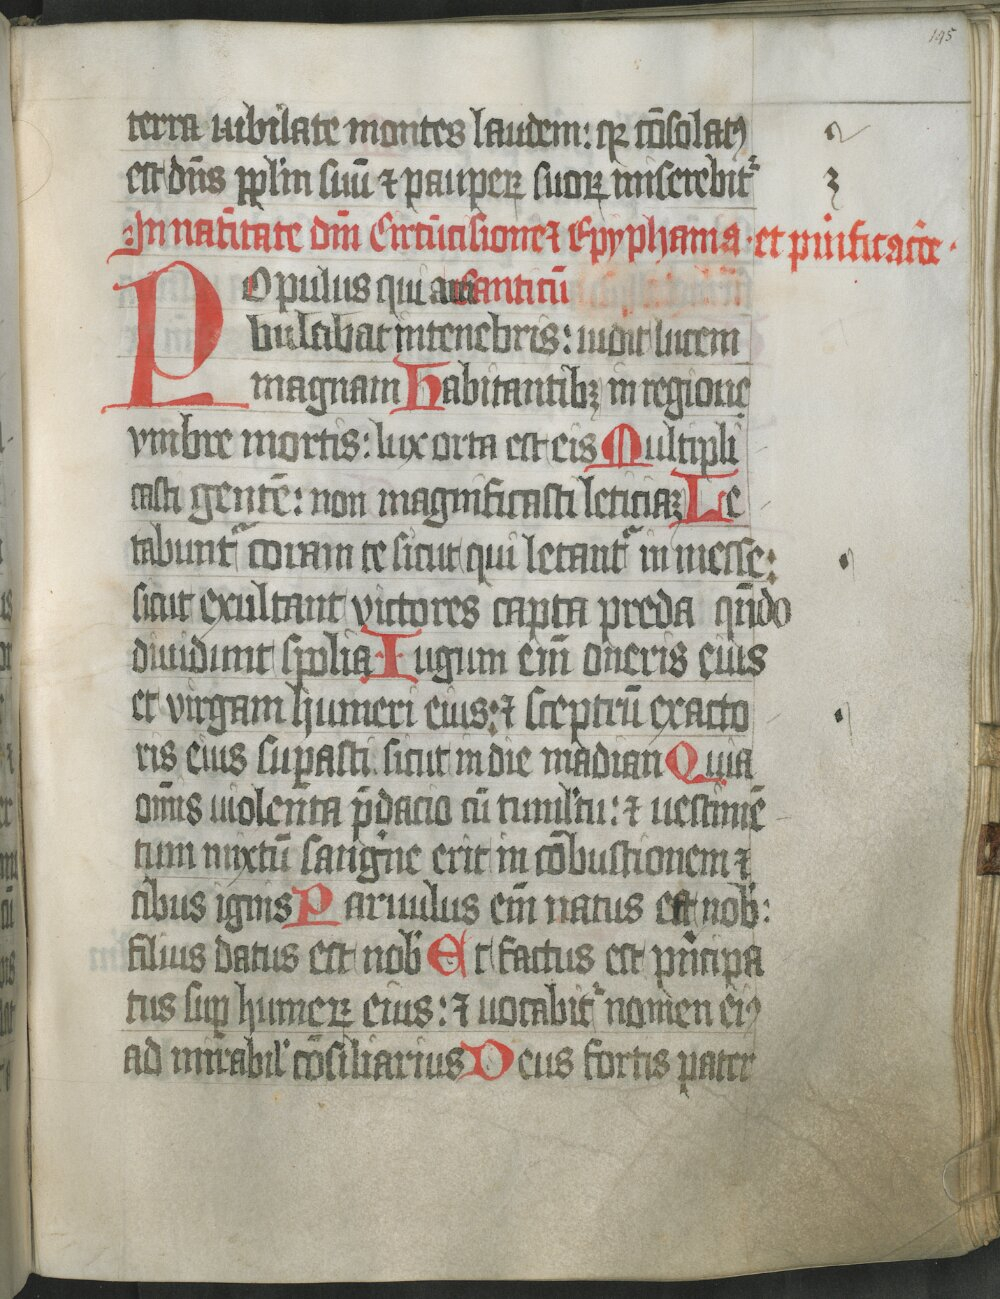 195
terra iubilate montes laudem: qꝛ cōsolatꝰ
est dn̄s pplm̄ suū ⁊ pauperꝝ suoꝝ miserebit᷑
In natiītate dn̄i Circūcisione ⁊ Epyphania · et purificatōe ·
POpulus qui am canticū
bulabat in tenebris: uidit lucem
magnam Habitantibꝫ in regione
vmbre mortis: lux orta est eis Multipli
casti gentē: non magnificasti leticiaꝫ Le
tabunt᷑ coram te sicut qui letant᷑ in messe:
sicut exultant victores capta preda qn̄do
diuidunt spolia Iugum em̄ oneris eius
et virgam humeri eius: ⁊ sceptrū exacto
ris eius suꝑasti sicut in die madian Quia
om̄is uiolenta p̄datio cū tumltu: ⁊ uestimē
tum mixtū sangⁱne erit in cōbustionem ⁊
cibus ignis Paruulus em̄ natus est nob̄:
filius datus est nob̄ Et factus est pⁱncipa
tus suꝑ humerꝝ eius: ⁊ uocabit᷑ nomen eiꝰ
ad mirabil' cōsiliarius Deus fortis pater